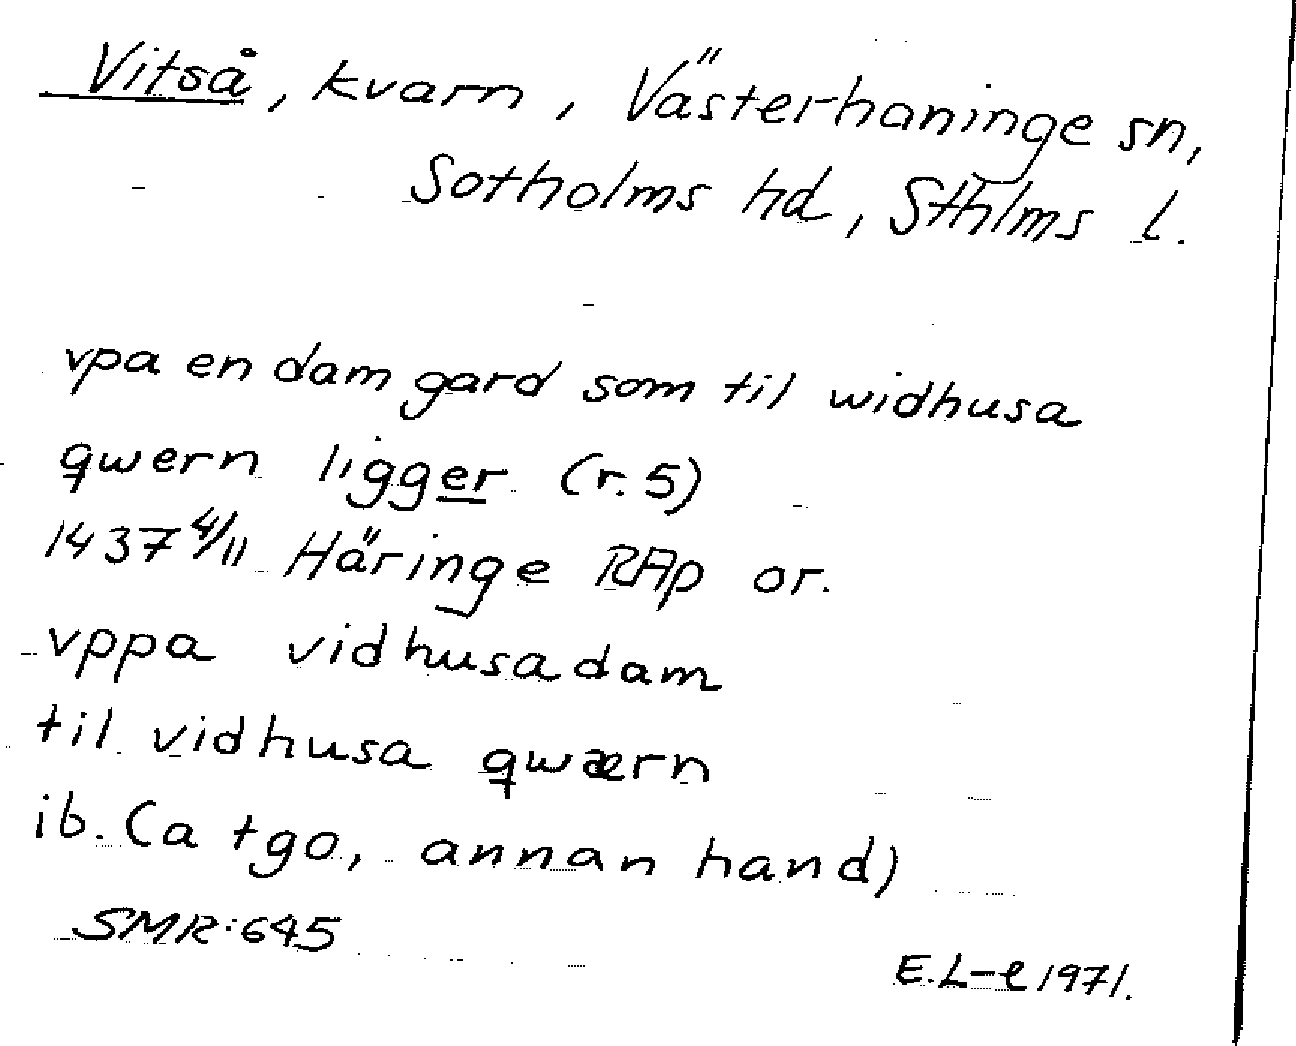 Vitså, kvarn, Västerhaninge sn,
Sotholms hd, Sthlms l.
vpa en dam gard som til widhusa
qwern ligger (r. 5)
1437 4/11 Häringe RAp or.
vppa vidhusadam
til vidhusa qwærn
ib. (a tgo, annan hand)
SMR:645
E.L-e 1971.